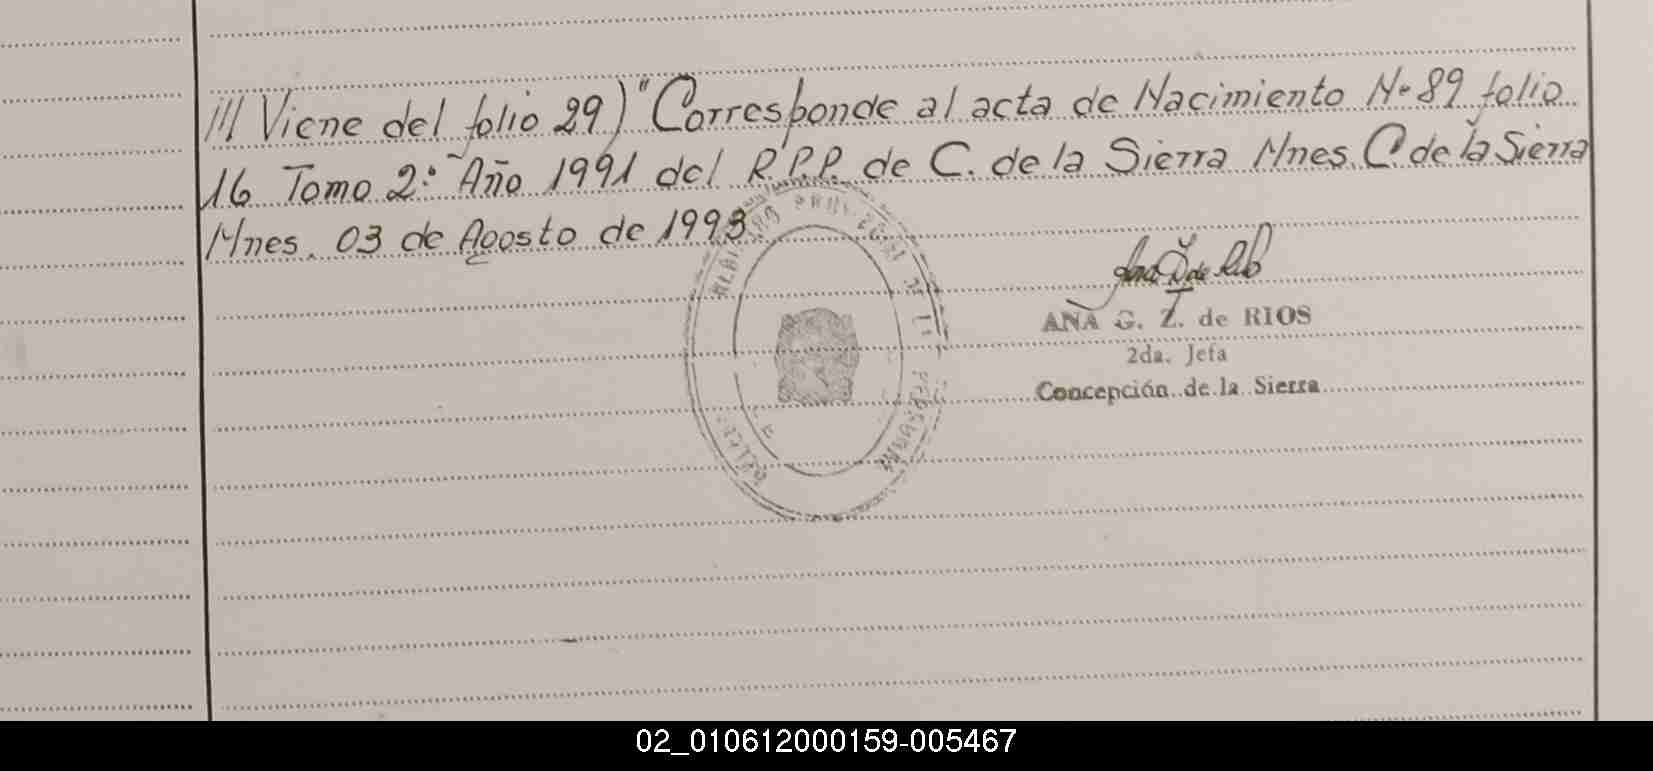 /// Viene del folio 29) "Corresponde al acta de Nacimiento Nº 89 folio
16 Tomo 2º Año 1991 del R.P.P. de C. de la Sierra Mnes. C. de la Sierra
Mnes. 03 de Agosto de 1993.
ANA G. Z. de RIOS
2da. Jefa
Concepción de la Sierra
02_010612000159-005467